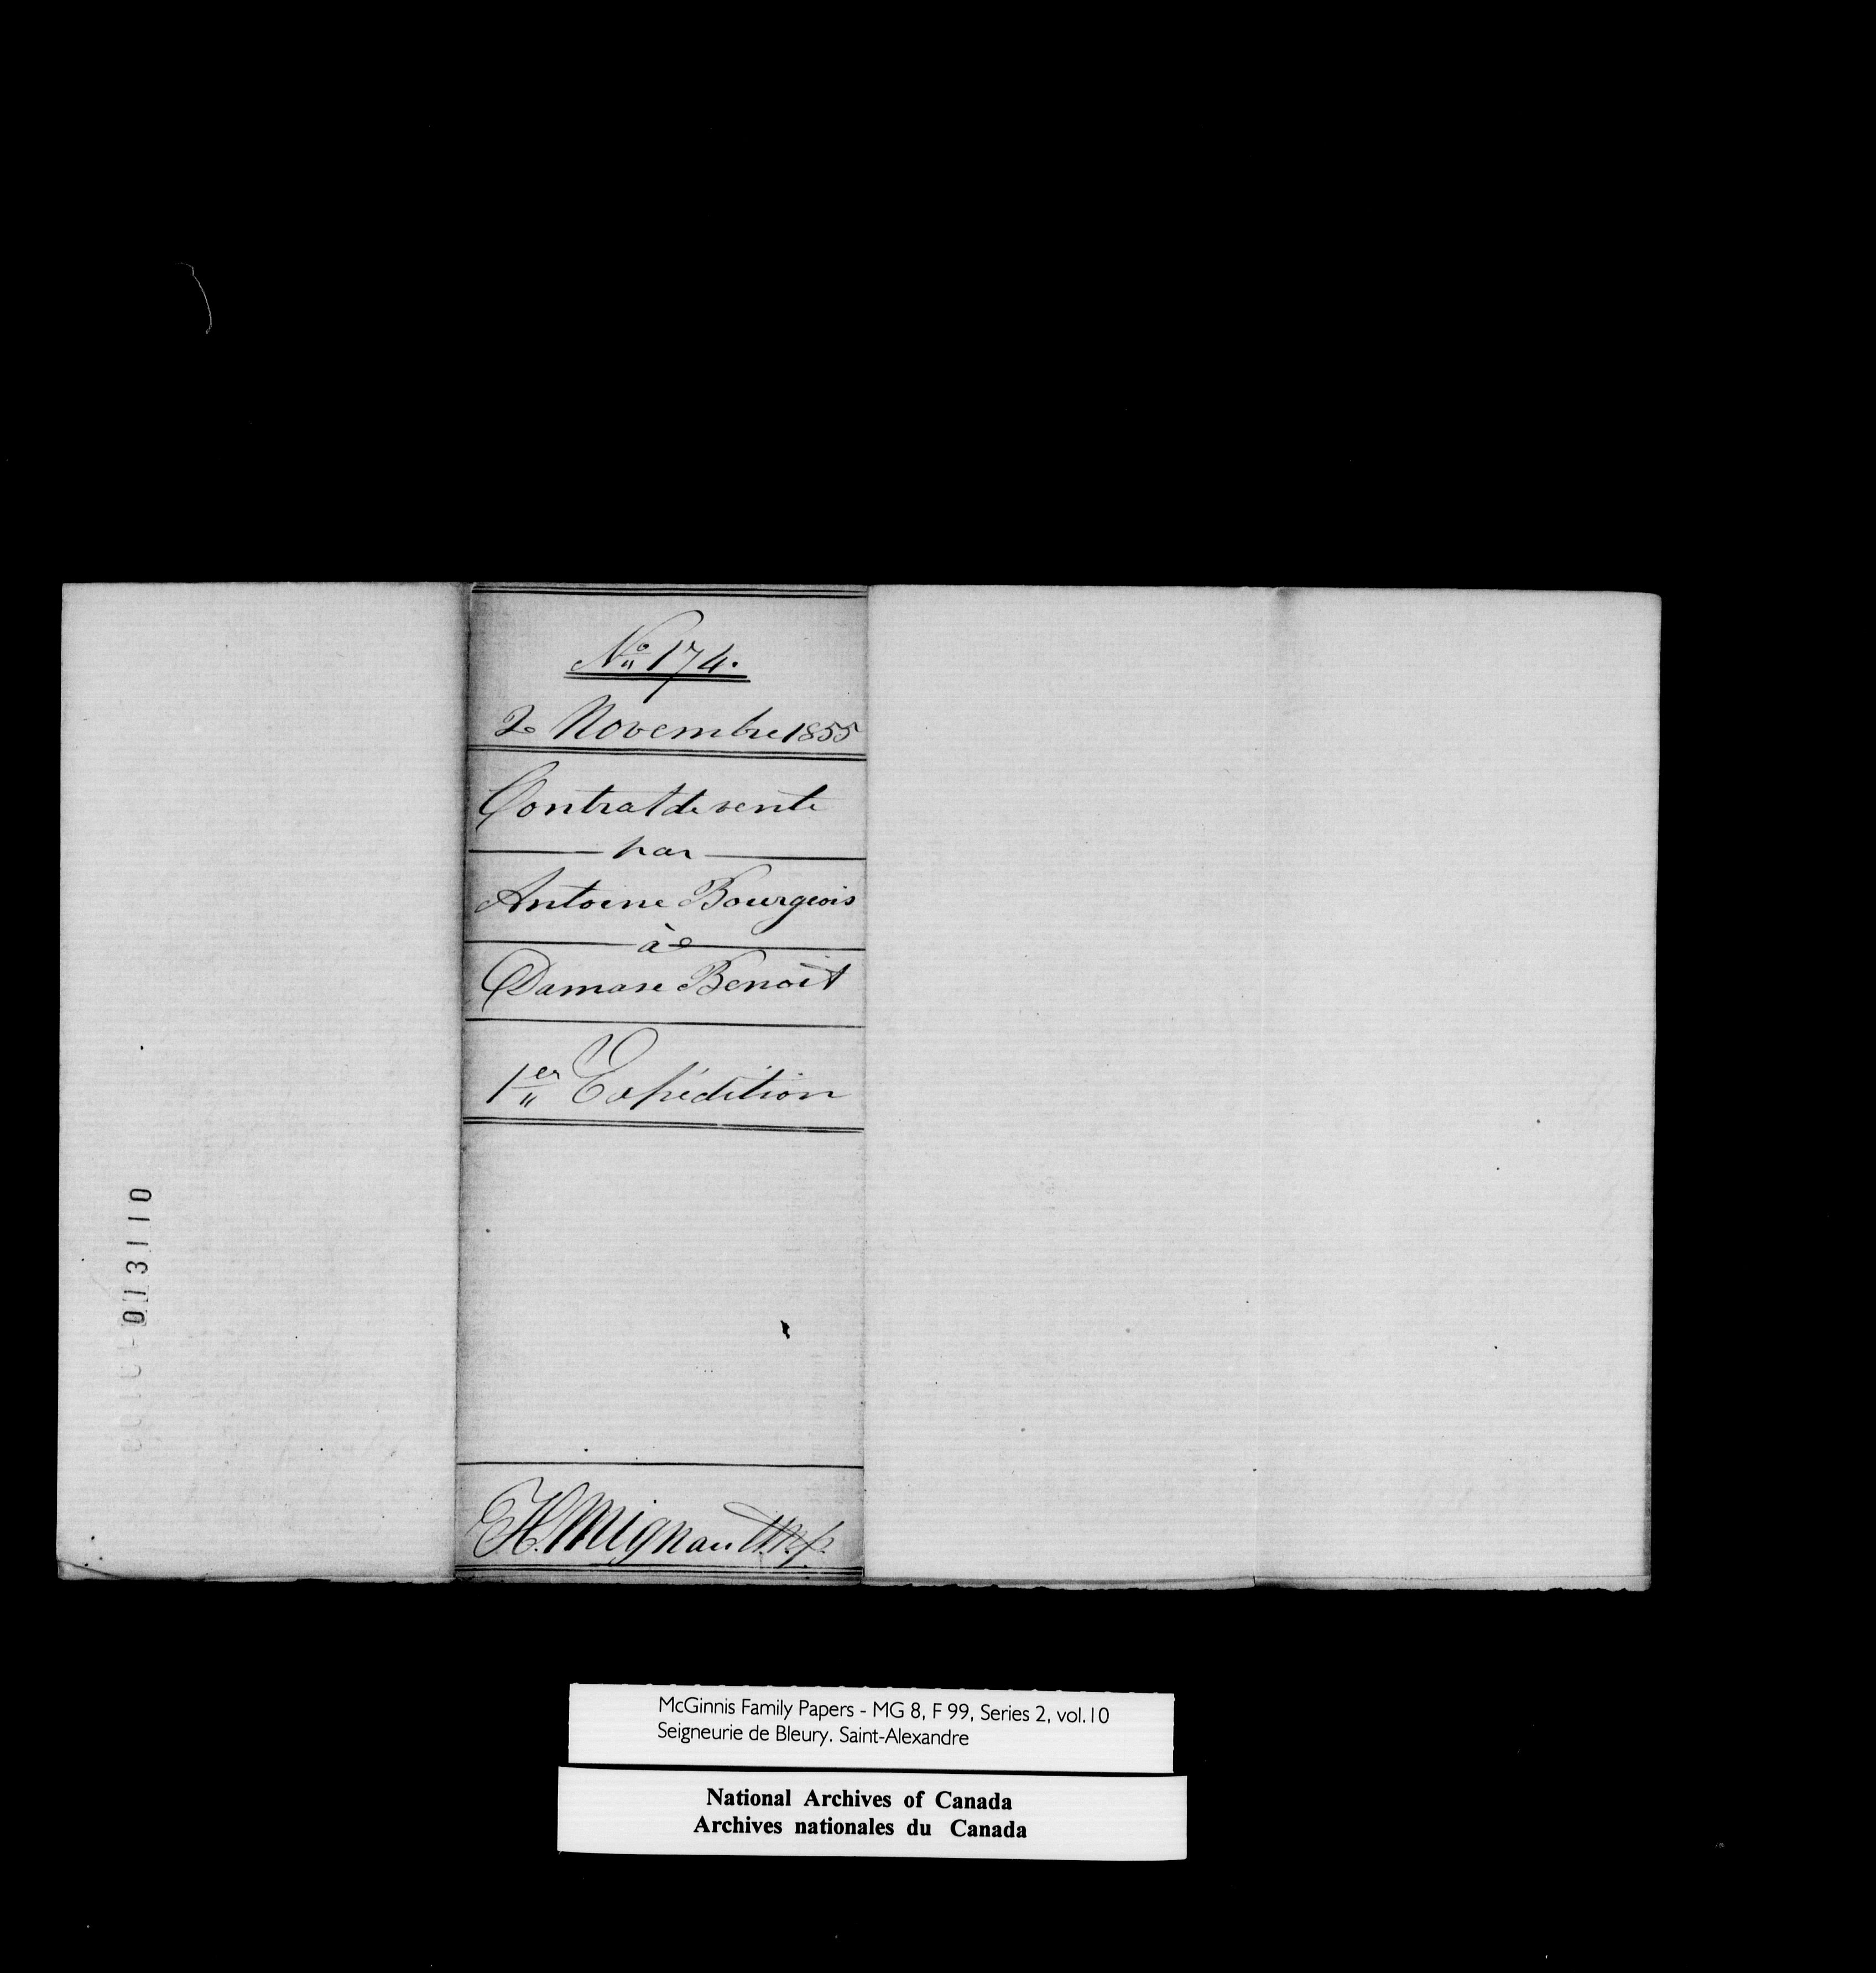 No 174.
2 Novembre 1855
Contrat de vente
par
Antoine Bourgeois
à
Damase Benoît
1er Expédition
H. Mignault N.P.
013110
McGinnis Family Papers - MG 8, F 99, Series 2, vol.10
Seigneurie de Bleury. Saint-Alexandre
National Archives of Canada
Archives nationales du Canada